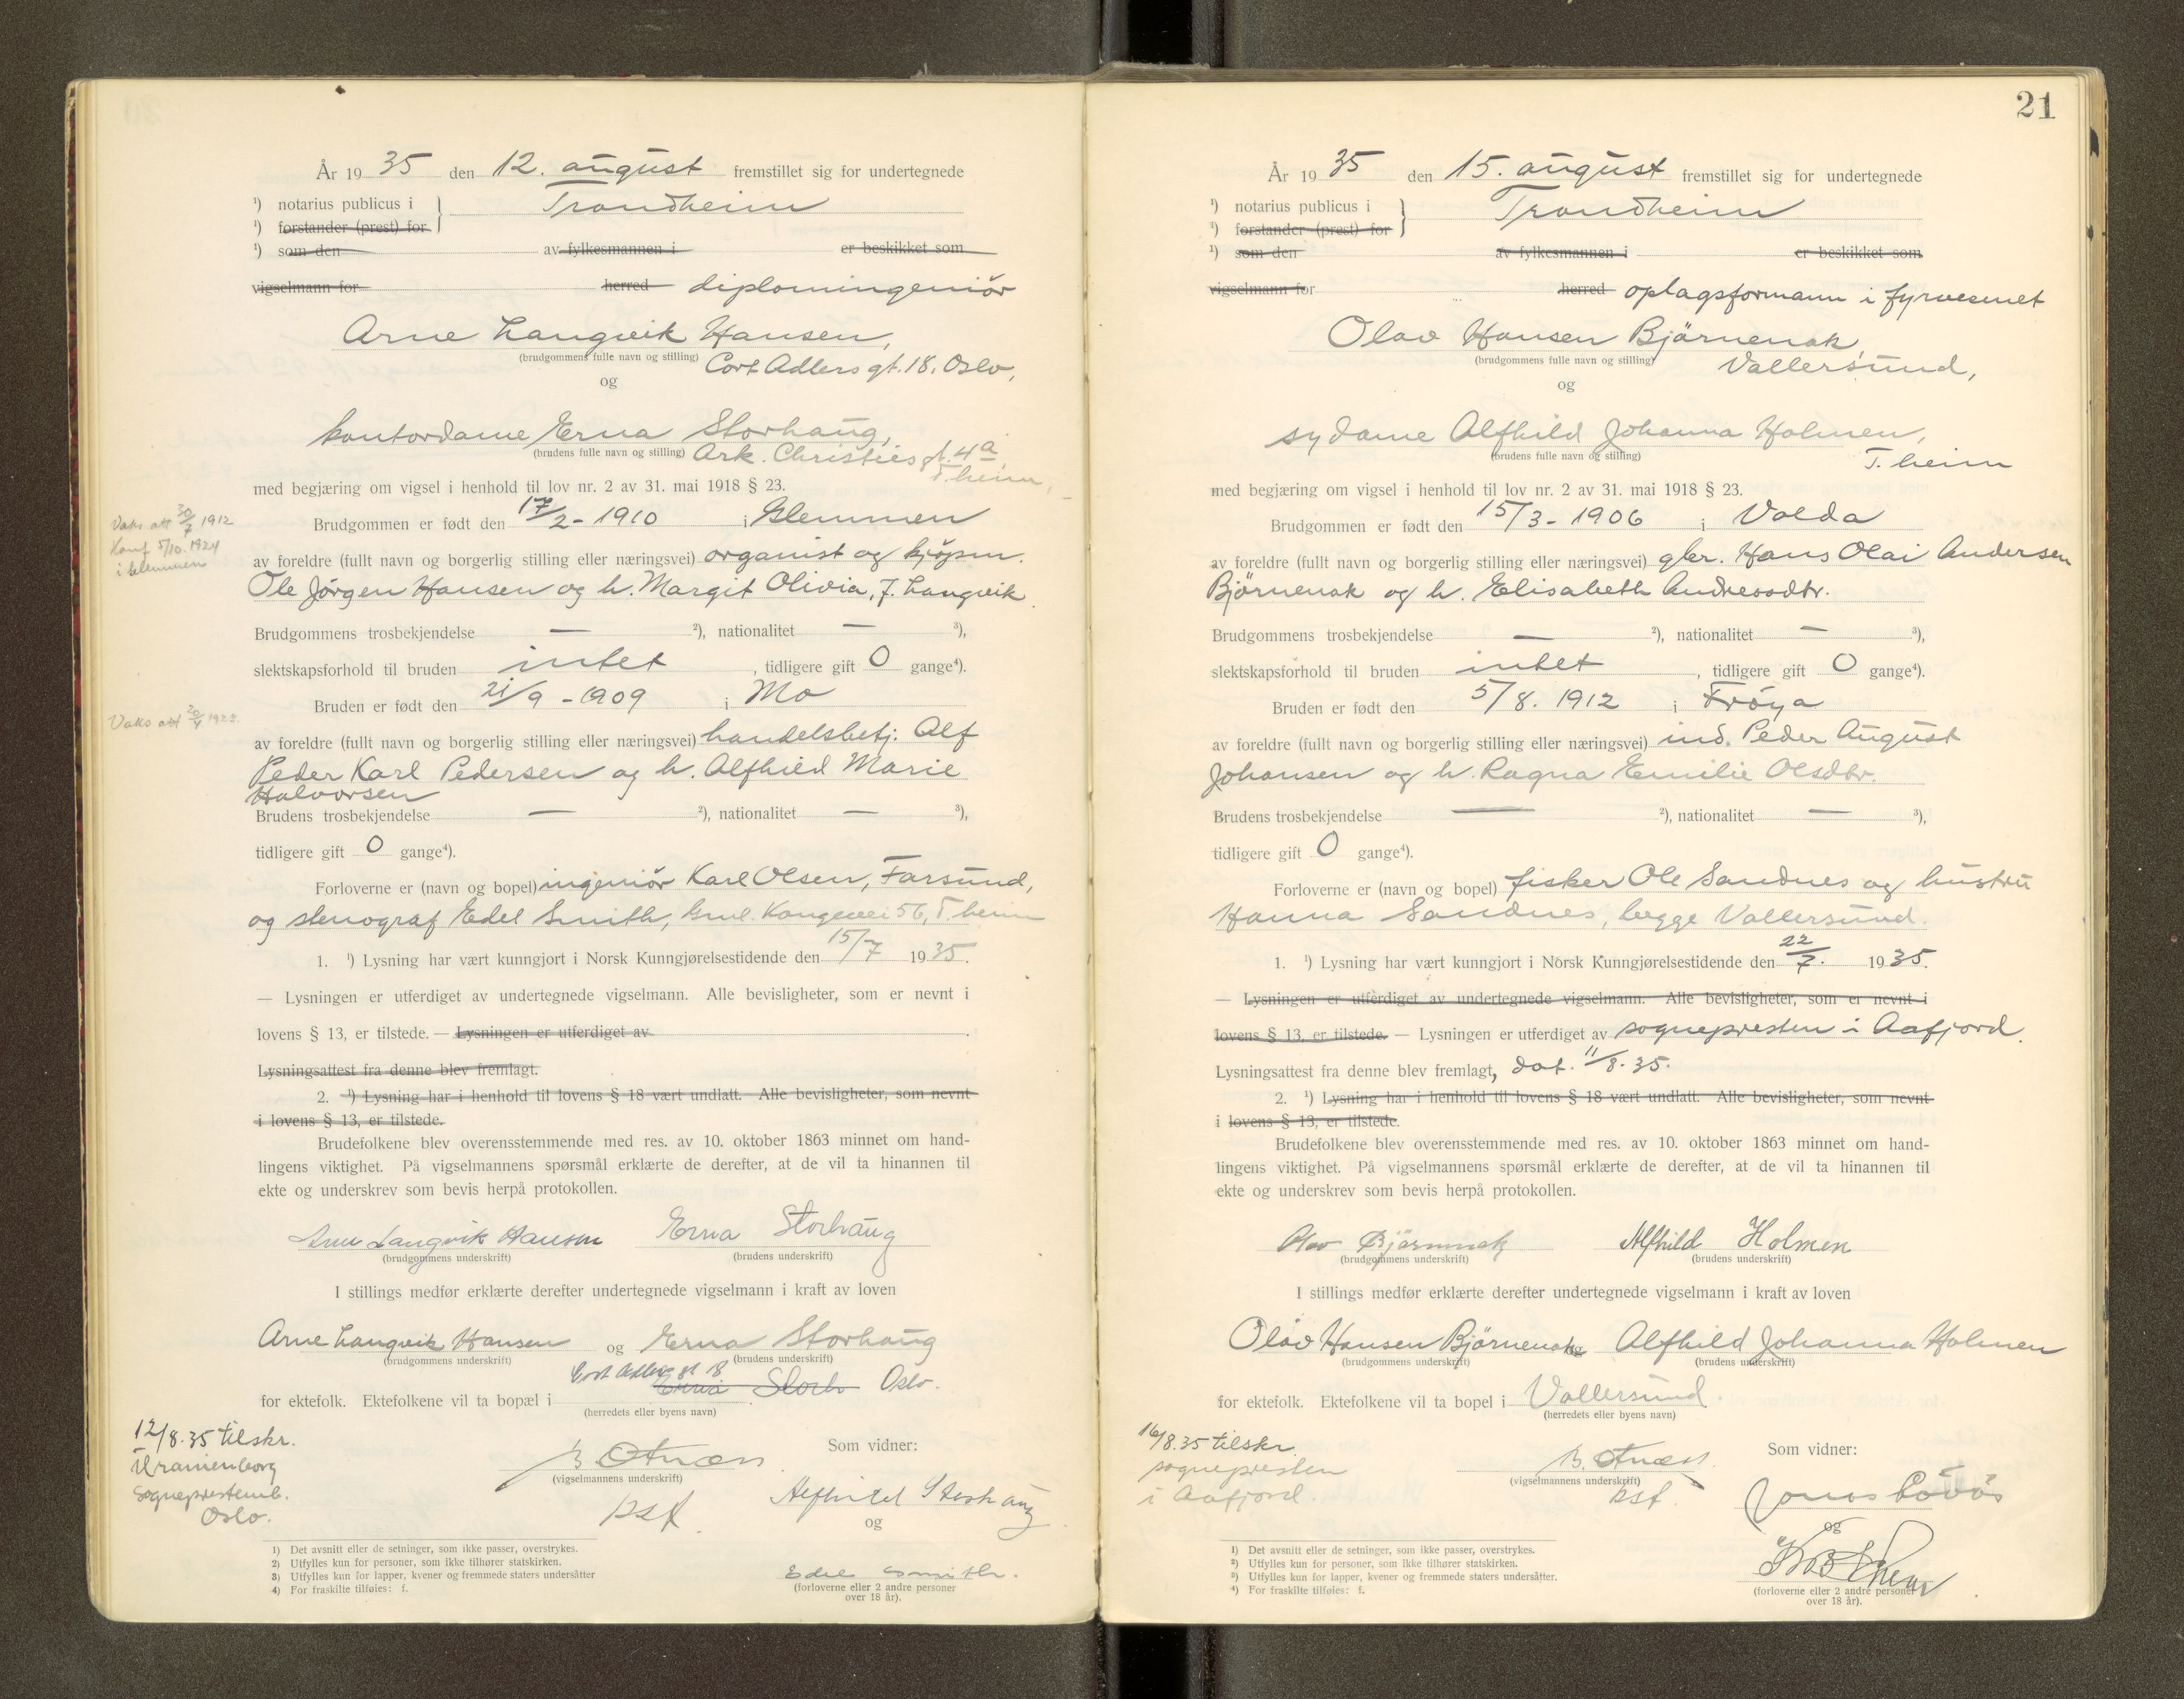 År 19 35 den 12. august fremstillet sig for undertegnede
¹) notarius publicus i } Trondheim
¹) forstander (prest) for
¹) som den av fylkesmannen i er beskikket som
vigselmann for herred diplomingeniør
Arne Langvik Hansen,
(brudgommens fulle navn og stilling) Cort Adlers gt. 18. Oslo,
og
kontordame Erna Storhaug,
(brudens fulle navn og stilling) Ark. Christies gt. 4a
T.heim,
med begjæring om vigsel i henhold til lov nr. 2 av 31. mai 1918 § 23.
Vaks att 30/7 1912
Konf 5/10.1924
i Glemmen
Brudgommen er født den 17/2 - 1910 i Glemmen
av foreldre (fullt navn og borgerlig stilling eller næringsvei) organist og kjøpm.
Ole Jørgen Hansen og h. Margit Olivia, f. Langvik.
Brudgommens trosbekjendelse — ²), nationalitet — ³),
slektskapsforhold til bruden intet, tidligere gift 0 gange⁴).
Bruden er født den 21/9 - 1909 i Mo
Vaks att
av foreldre (fullt navn og borgerlig stilling eller næringsvei) handelsbetj. Alf
Peder Karl Pedersen og h. Alfhild Marie
Halvorsen
Brudens trosbekjendelse — ²), nationalitet — ³),
tidligere gift 0 gange⁴).
Forloverne er (navn og bopel) ingeniør Karl Olsen, Farsund,
og stenograf Edel Smith, Gml. Kongevei 56, T.heim
1. ¹) Lysning har vært kunngjort i Norsk Kunngjørelsestidende den 15/7 19 35.
— Lysningen er utferdiget av undertegnede vigselmann. Alle bevisligheter, som er nevnt i
lovens § 13, er tilstede. — Lysningen er utferdiget av .
Lysningsattest fra denne blev fremlagt.
2. ¹) Lysning har i henhold til lovens § 18 vært undlatt. Alle bevisligheter, som nevnt
i lovens § 13, er tilstede.
Brudefolkene blev overensstemmende med res. av 10. oktober 1863 minnet om hand-
lingens viktighet. På vigselmannens spørsmål erklærte de derefter, at de vil ta hinannen til
ekte og underskrev som bevis herpå protokollen.
Arne Langvik Hansen Erna Storhaug
(brudgommens underskrift) (brudens underskrift)
I stillings medfør erklærte derefter undertegnede vigselmann i kraft av loven
Arne Langvik Hansen og Erna Storhaug
(brudgommens underskrift) (brudens underskrift)
Cort Adlers gt 18
for ektefolk. Ektefolkene vil ta bopæl i Erna Storh Oslo.
(herredets eller byens navn)
12/8.35 tilskr.
Uranienborg
Sogneprestemb.
Oslo.
B. Otnæs Som vidner:
(vigselmannens underskrift)
Kst. Alfhild Storhaug
og
Edel Smith.
(forloverne eller 2 andre personer
over 18 år).
1) Det avsnitt eller de setninger, som ikke passer, overstrykes.
2) Utfylles kun for personer, som ikke tilhører statskirken.
3) Utfylles kun for lapper, kvener og fremmede staters undersåtter
4) For fraskilte tilføies: f.
21
År 19 35 den 15. august fremstillet sig for undertegnede
¹) notarius publicus i } Trondheim
¹) forstander (prest) for
¹) som den av fylkesmannen i er beskikket som
vigselmann for herred oplagsformann i fyrvesenet
Olav Hansen Bjørnenak,
(brudgommens fulle navn og stilling) Vallersund,
og
sydame Alfhild Johanna Holmen,
(brudens fulle navn og stilling) T.heim
med begjæring om vigsel i henhold til lov nr. 2 av 31. mai 1918 § 23.
Brudgommen er født den 15/3 - 1906 i Volda
av foreldre (fullt navn og borgerlig stilling eller næringsvei) gbr. Hans Olai Andersen
Bjørnenak og h. Elisabeth Andreasdtr.
Brudgommens trosbekjendelse — ²), nationalitet — ³),
slektskapsforhold til bruden intet, tidligere gift 0 gange⁴).
Bruden er født den 5/8. 1912 i Frøya
av foreldre (fullt navn og borgerlig stilling eller næringsvei) ind. Peder August
Johansen og h. Ragna Emilie Olsdtr.
Brudens trosbekjendelse — ²), nationalitet — ³),
tidligere gift 0 gange⁴).
Forloverne er (navn og bopel) fisker Ole Sandnes og hustru
Hanna Sandnes, begge Vallersund.
1. ¹) Lysning har vært kunngjort i Norsk Kunngjørelsestidende den 22/7. 19 35.
— Lysningen er utferdiget av undertegnede vigselmann. Alle bevisligheter, som er nevnt i
lovens § 13, er tilstede. — Lysningen er utferdiget av sognepresten i Aafjord.
Lysningsattest fra denne blev fremlagt, dat. 11/8.35.
2. ¹) Lysning har i henhold til lovens § 18 vært undlatt. Alle bevisligheter, som nevnt
i lovens § 13, er tilstede.
Brudefolkene blev overensstemmende med res. av 10. oktober 1863 minnet om hand-
lingens viktighet. På vigselmannens spørsmål erklærte de derefter, at de vil ta hinannen til
ekte og underskrev som bevis herpå protokollen.
Olav Bjørnenak Alfhild Holmen
(brudgommens underskrift) (brudens underskrift)
I stillings medfør erklærte derefter undertegnede vigselmann i kraft av loven
Olav Hansen Bjørnenak og Alfhild Johanna Holmen
(brudgommens underskrift) (brudens underskrift)
for ektefolk. Ektefolkene vil ta bopel i Vallersund.
(herredets eller byens navn)
16/8.35 tilskr.
sognepresten
i Aafjord.
B. Otnæs. Som vidner:
(vigselmannens underskrift)
Kst. Jonas
og
(forloverne eller 2 andre personer
over 18 år).
¹) Det avsnitt eller de setninger, som ikke passer, overstrykes.
²) Utfylles kun for personer, som ikke tilhører statskirken.
³) Utfylles kun for lapper, kvener og fremmede staters undersåtter.
⁴) For fraskilte tilføies: f.